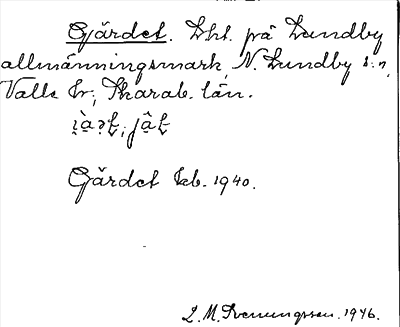 Gärdet. Lht. på Lundby
allmänningsmark, N. Lundby s:n,
Valle hr; Skarab. län.
Gärdet Ek. 1940.
L. M. Svenungsson. 1946.